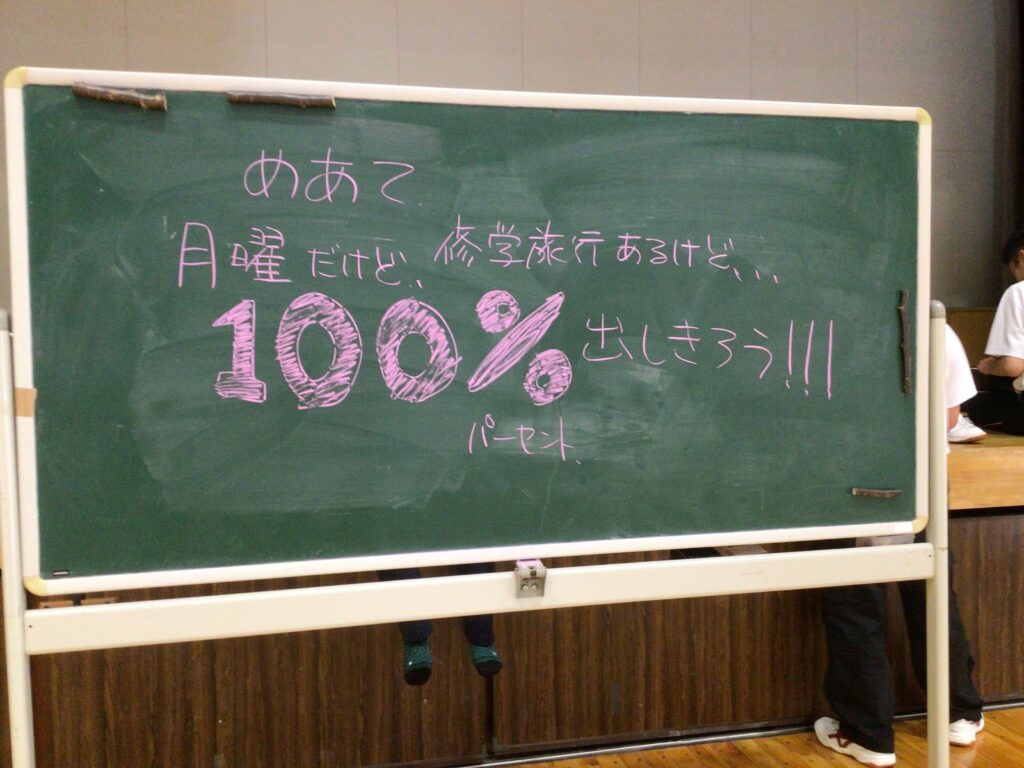 めあて
月曜だけど、、修学旅行あるけど、、、
100%出しきろう!!!
パーセント